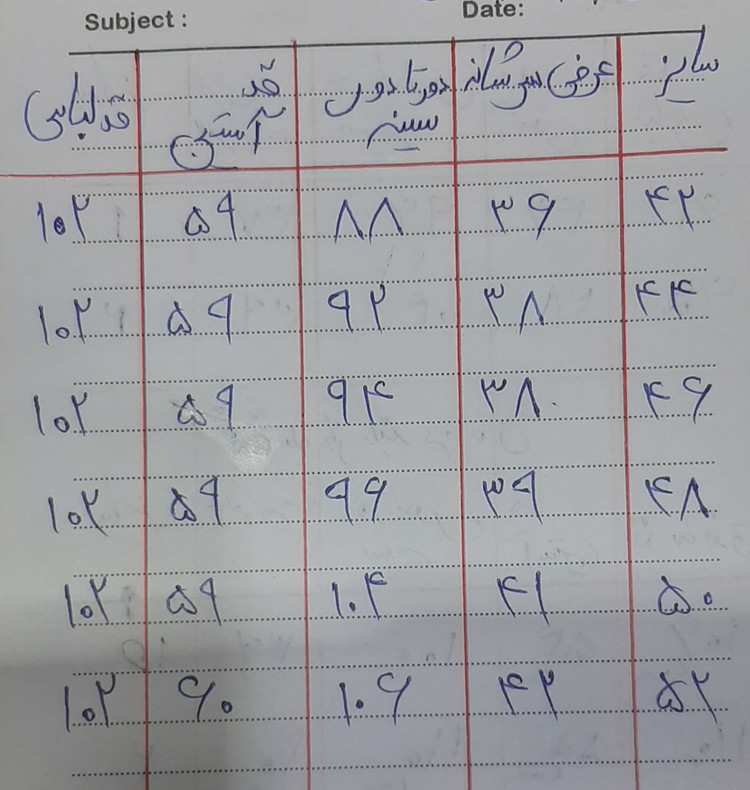 Subject : Date:
سایز عرض سرشانه دور تا دور سینه قد آستین قد لباس
۴۲ ۳۶ ۸۸ ۵۹ ۱۰۲
۴۴ ۳۸ ۹۲ ۵۹ ۱۰۲
۴۶ ۳۸ ۹۴ ۵۹ ۱۰۲
۴۸ ۳۹ ۹۶ ۵۹ ۱۰۲
۵۰ ۴۱ ۱۰۴ ۵۹ ۱۰۲
۵۲ ۴۲ ۱۰۶ ۶۰ ۱۰۲